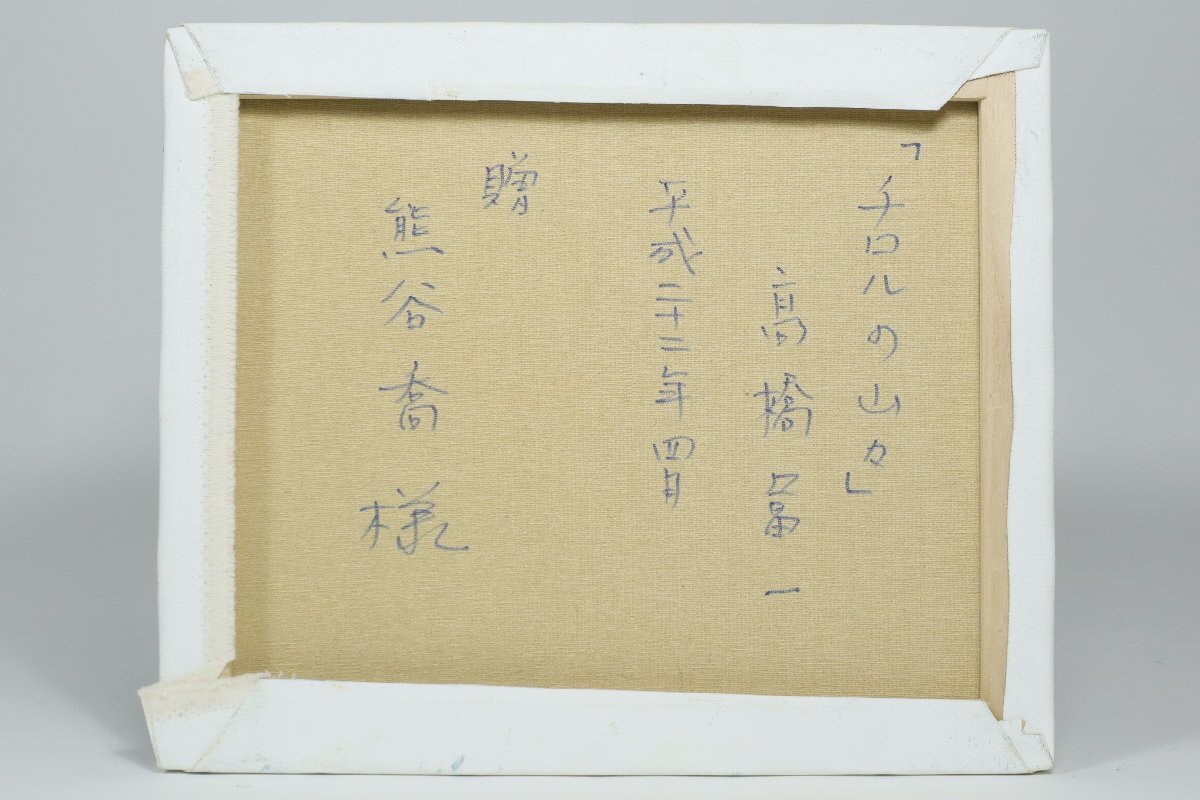 「チロルの山々」
高橋 一
平成二十二年四月
贈
熊谷喬様